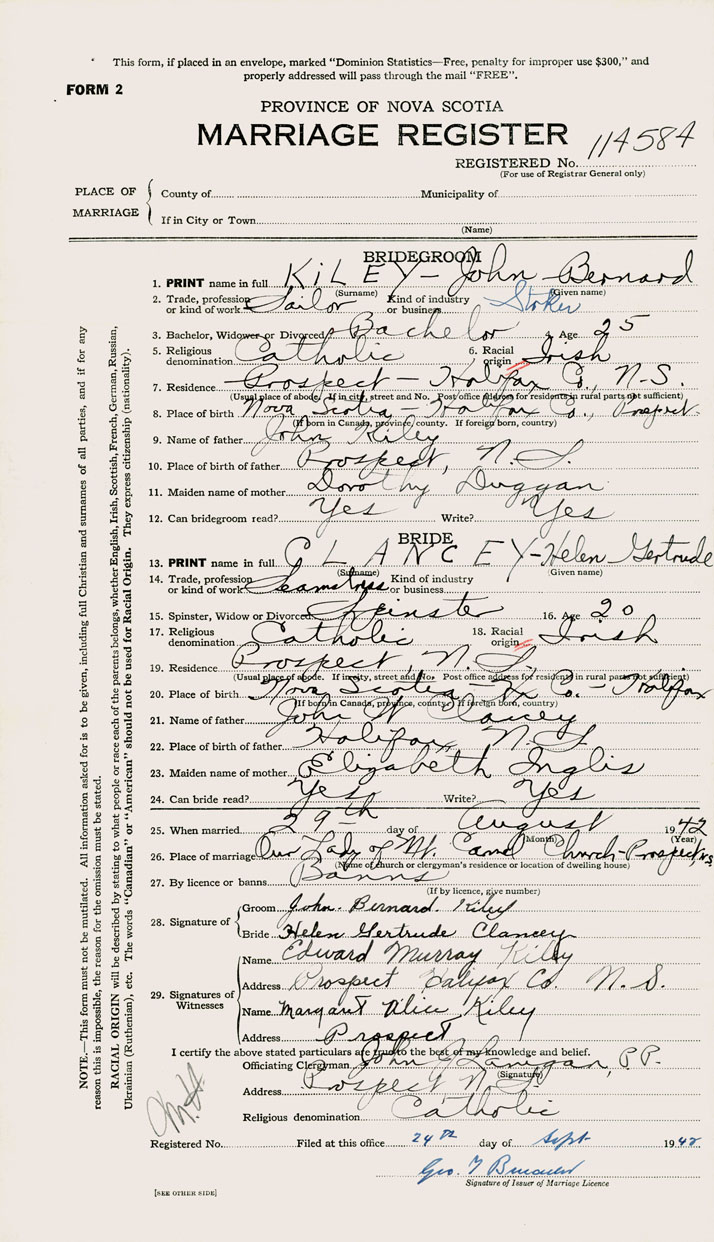 This form, if placed in an envelope, marked "Dominion Statistics—Free, penalty for improper use $300," and
properly addressed will pass through the mail "FREE".
FORM 2
PROVINCE OF NOVA SCOTIA
MARRIAGE REGISTER
REGISTERED No. 114584
(For use of Registrar General only)
PLACE OF MARRIAGE
County of Municipality of
If in City or Town
(Name)
BRIDEGROOM
1. PRINT name in full KILEY - John Bernard
(Surname) (Given name)
2. Trade, profession or kind of work Sailor Kind of industry or business Stoker
3. Bachelor, Widower or Divorced Bachelor 4. Age 25
5. Religious denomination Catholic 6. Racial origin Irish
7. Residence Prospect - Halifax Co., N.S.
(Usual place of abode. If in city, street and No. Post office address for residents in rural parts not sufficient)
8. Place of birth Nova Scotia - Halifax Co., Prospect.
(If born in Canada, province, county. If foreign born, country)
9. Name of father John Kiley
10. Place of birth of father Prospect, N.S.
11. Maiden name of mother Dorothy Duggan
12. Can bridegroom read? Yes Write? Yes
BRIDE
13. PRINT name in full CLANCEY - Helen Gertrude
(Surname) (Given name)
14. Trade, profession or kind of work Seamstress Kind of industry or business
15. Spinster, Widow or Divorced Spinster 16. Age 20
17. Religious denomination Catholic 18. Racial origin Irish
19. Residence Prospect, N.S.
(Usual place of abode. If in city, street and No. Post office address for residents in rural parts not sufficient)
20. Place of birth Nova Scotia - Hx Co. - Halifax
(If born in Canada, province, county. If foreign born, country)
21. Name of father John W Clancey
22. Place of birth of father Halifax, N.S.
23. Maiden name of mother Elizabeth Inglis
24. Can bride read? Yes Write? Yes
25. When married 29th day of August 1942
(Month) (Year)
26. Place of marriage Our Lady of Mt. Carmel Church - Prospect, N.S.
(Name of church or clergyman's residence or location of dwelling house)
27. By licence or banns Banns
(If by licence, give number)
28. Signature of
Groom John Bernard Kiley
Bride Helen Gertrude Clancey
29. Signatures of Witnesses
Name Edward Murray Kiley
Address Prospect Halifax Co. N.S.
Name Margaret Alice Kiley
Address Prospect
I certify the above stated particulars are true to the best of my knowledge and belief.
Officiating Clergyman John J Lanigan, P.P.
(Signature)
Address Prospect N.S.
Religious denomination Catholic
Registered No. Filed at this office 24th day of Sept 1942
Geo. T
Signature of Issuer of Marriage Licence
[SEE OTHER SIDE]
NOTE.—This form must not be mutilated. All information asked for is to be given, including full Christian and surnames of all parties, and if for any
reason this is impossible, the reason for the omission must be stated.
RACIAL ORIGIN will be described by stating to what people or race each of the parents belongs, whether English, Irish, Scottish, French, German, Russian,
Ukrainian (Ruthenian), etc. The words "Canadian" or "American" should not be used for Racial Origin. They express citizenship (nationality).